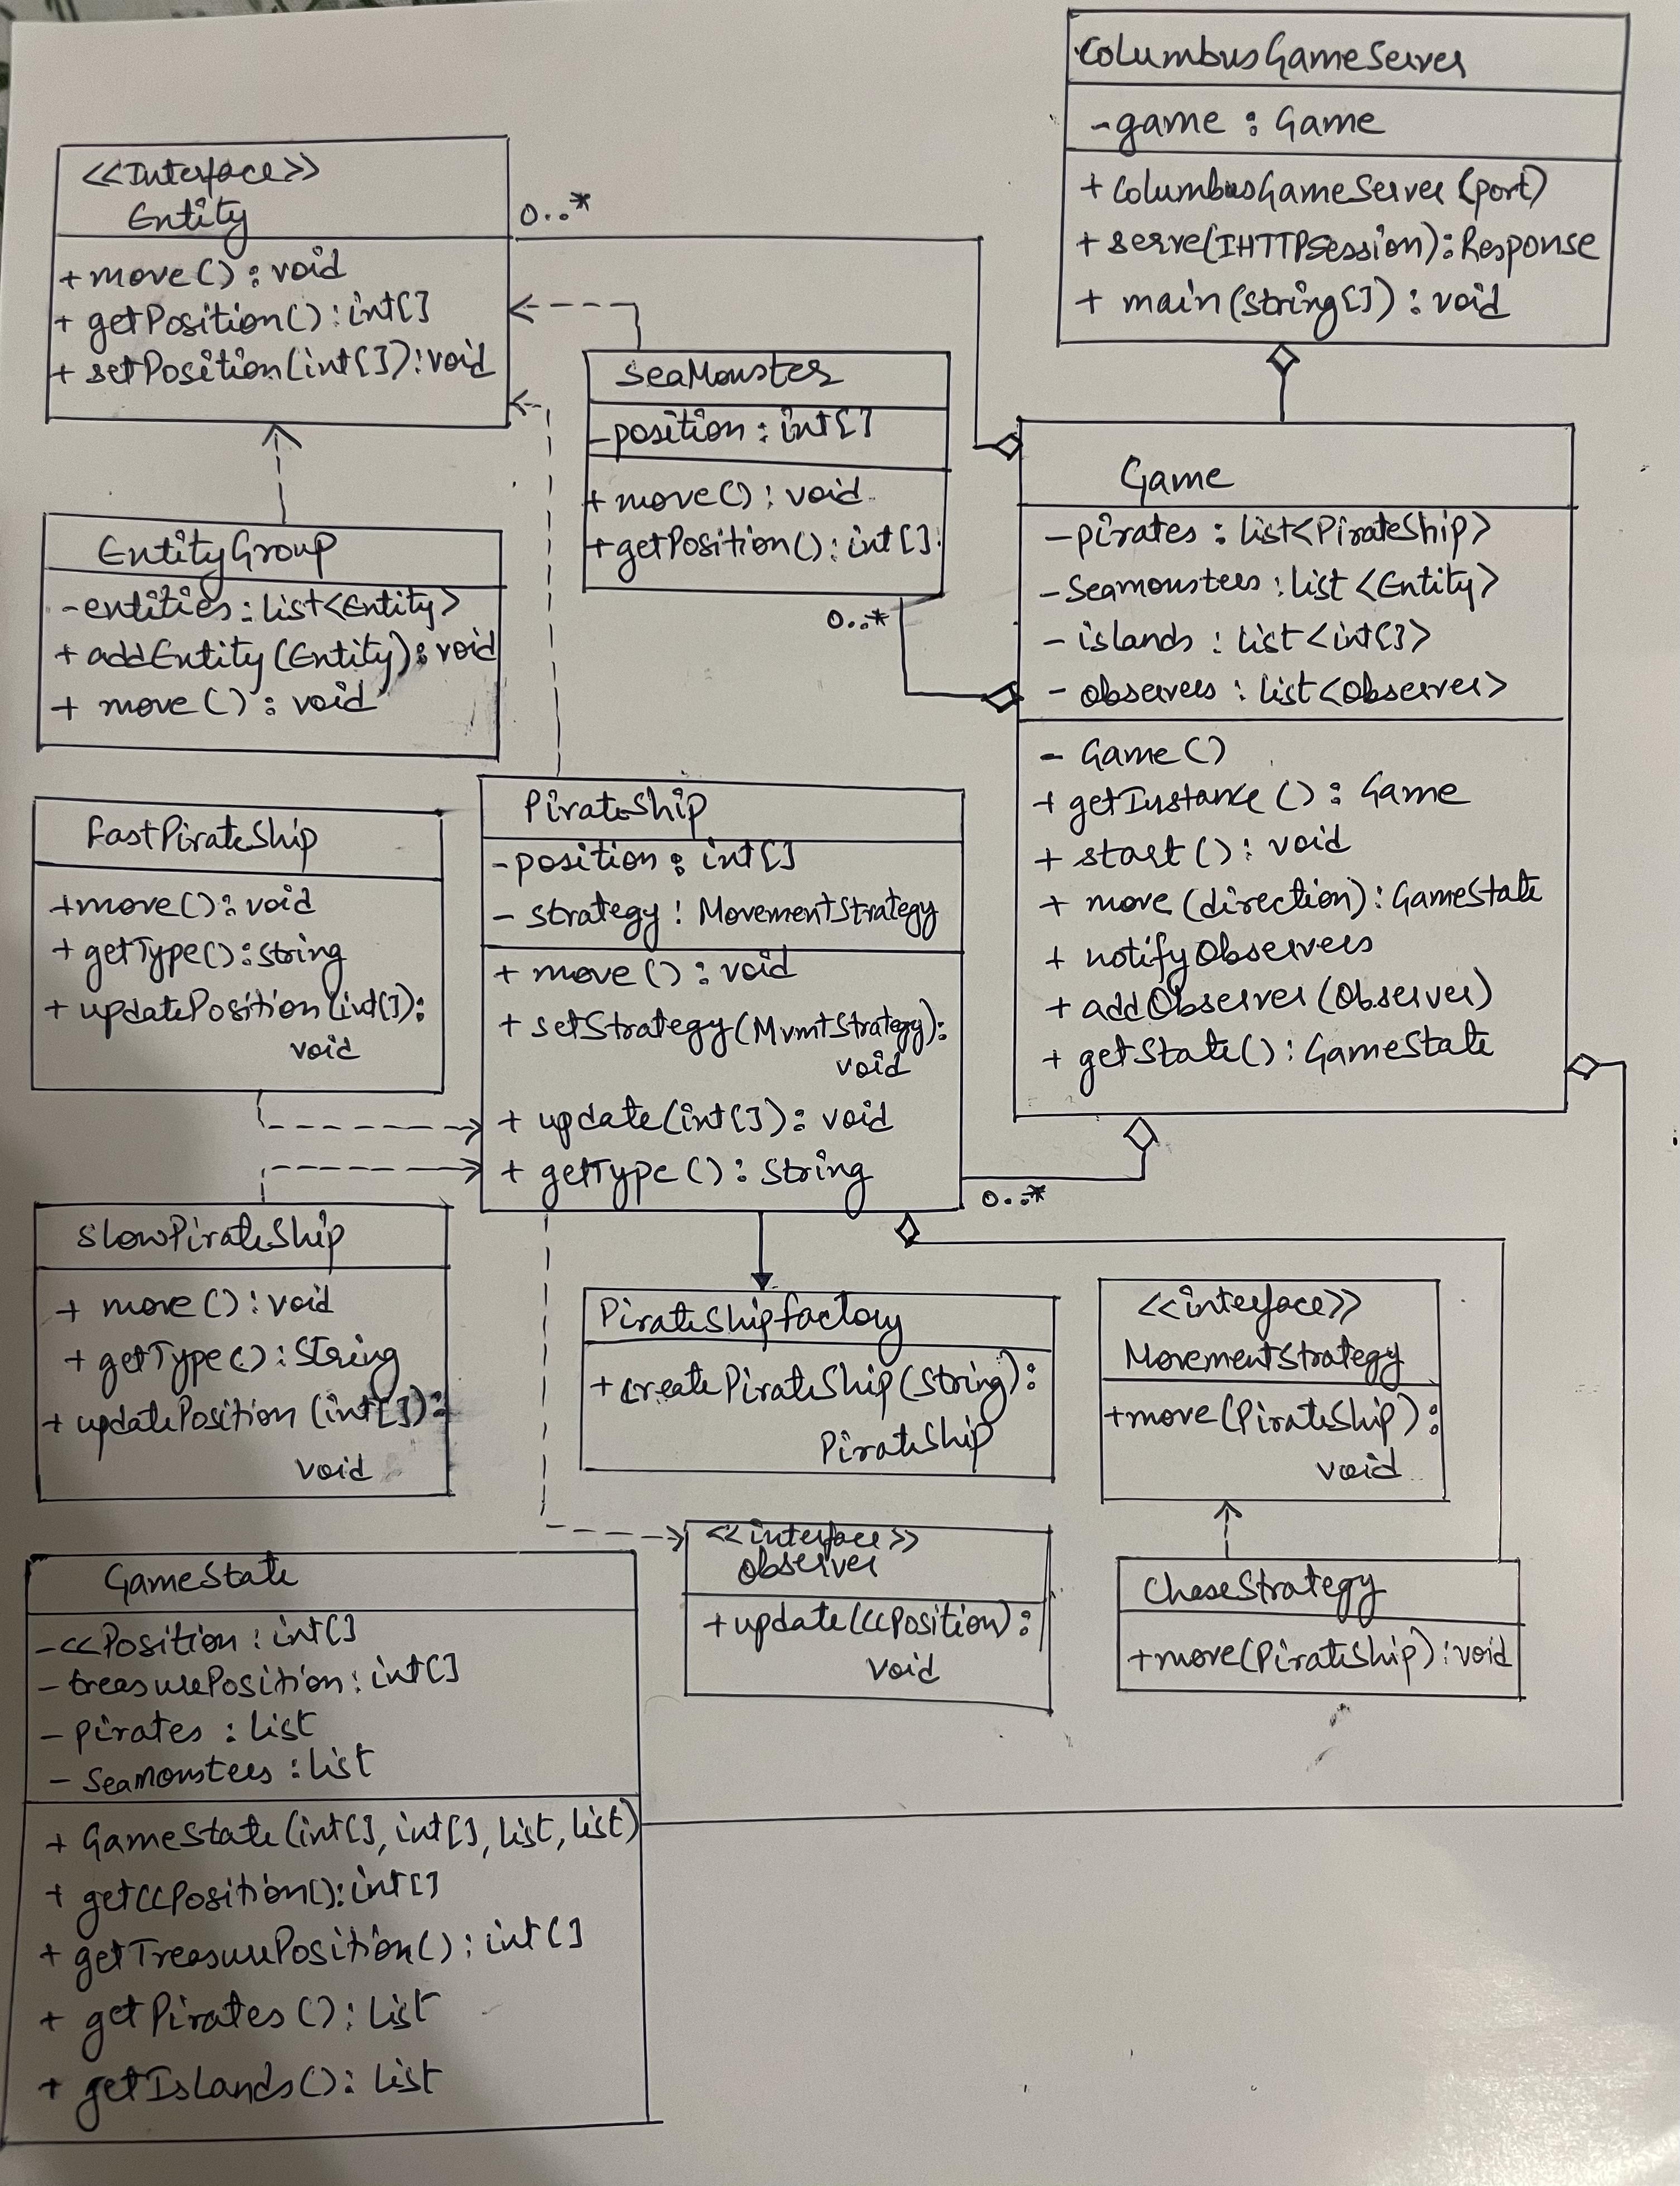 ColumbusGameServer
- game : Game
+ ColumbusGameServer (port)
+ serve(IHTTPSession): Response
+ main(String[]) : void
<<Interface>>
Entity
+ move() : void
+ getPosition() : int[]
+ setPosition(int[]) : void
0..*
SeaMonster
- position : int[]
+ move() : void
+ getPosition() : int[]
0..*
Game
- pirates : List<PirateShip>
- Seamonsters : List<Entity>
- islands : List<int[]>
- observers : List<Observer>
- Game()
+ getInstance() : Game
+ start() : void
+ move(direction) : GameState
+ notifyObservers
+ addObserver(Observer)
+ getState() : GameState
EntityGroup
- entities : List<Entity>
+ addEntity(Entity) : void
+ move() : void
FastPirateShip
+ move() : void
+ getType() : String
+ updatePosition(int[]) :
void
PirateShip
- position : int[]
- strategy : MovementStrategy
+ move() : void
+ setStrategy(MvmtStrategy) :
void
+ update(int[]) : void
+ getType() : String
0..*
SlowPirateShip
+ move() : void
+ getType() : String
+ updatePosition(int[]) :
void
PirateShipFactory
+ createPirateShip(String) :
PirateShip
<<interface>>
MovementStrategy
+ move(PirateShip) :
void
<<interface>>
Observer
+ update(CCPosition) :
void
ChaseStrategy
+ move(PirateShip) : void
GameState
- CCPosition : int[]
- treasurePosition : int[]
- pirates : List
- SeaMonsters : List
+ GameState(int[], int[], List, List)
+ getCCPosition() : int[]
+ getTreasurePosition() : int[]
+ getPirates() : List
+ getIslands() : List